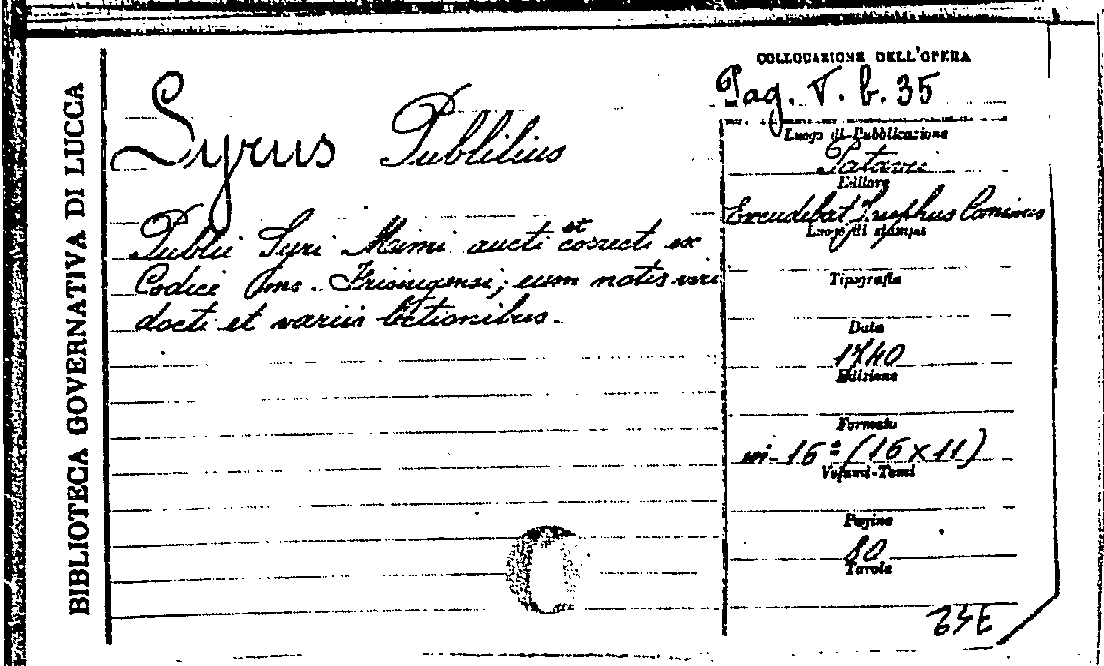 BIBLIOTECA GOVERNATIVA DI LUCCA
Syrus Publilius
Publii Syri Mimi aucti et correcti ex
Codici ms. Frisingensi; cum notis viri
docti et variis lectionibus.
COLLOCAZIONE DELL'OPERA
Pag. V. b. 35
Luogo di Pubblicazione
Patavii
Editore
Excudebat Josephus Cominus
Luogo di stampa
Tipografia
Data
1740
Edizione
Formato
in-16° (16x11)
Volumi-Tomi
Pagine
80
Tavole